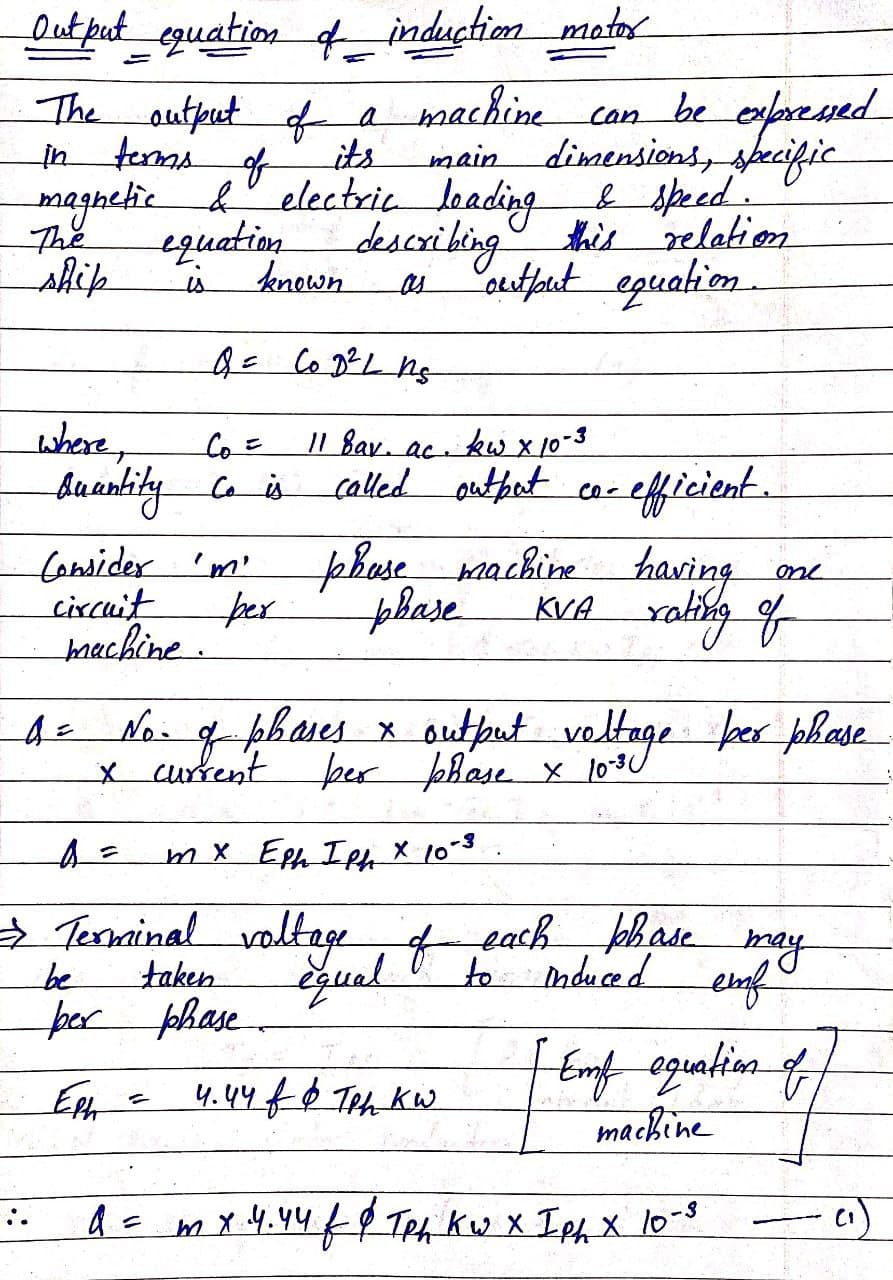 Output equation of induction motor
The output of a machine can be expressed
in terms of its main dimensions, specific
magnetic & electric loading & speed.
The equation describing this relation
ship is known as output equation.
Q = Co D²L ns
where, Co = 11 Bav. ac. kw x 10-³
Quantity Co is called output co-efficient.
Consider 'm' phase machine having one
circuit per phase KVA rating of
machine.
Q = No. of phases x output voltage per phase
x current per phase x 10-³
Q = m x Eph Iph x 10-³.
⇒ Terminal voltage of each phase may
be taken equal to induced emf
per phase.
Eph = 4.44 f ϕ Tph Kw [Emf equation of
machine]
∴ Q = m x 4.44 f ϕ Tph Kw x Iph x 10-³ — (1)